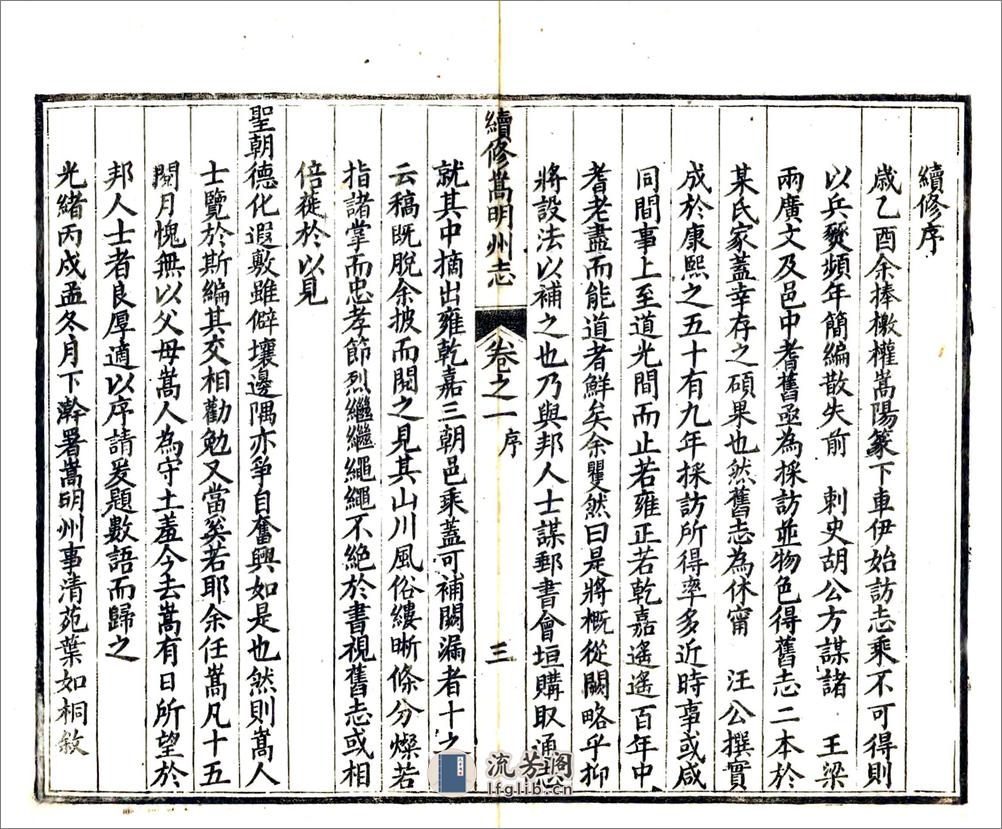 續修序
歲乙酉余捧檄權嵩陽篆下車伊始訪志乘不可得則
以兵燹頻年簡編散失前 刺史胡公方謀諸 王梁
兩廣文及邑中耆舊亟為採訪並物色得舊志二本於
某氏家蓋幸存之碩果也然舊志為休甯 汪公撰實
成於康熙之五十有九年採訪所得率多近時事或咸
同間事上至道光間而止若雍正若乾嘉遙遙百年中
耆老盡而能道者鮮矣余瞿然曰是將概從闕略乎抑
將設法以補之也乃與邦人士謀郵書會垣購取通志
續修嵩明州志 卷之一 序 三
就其中摘出雍乾嘉三朝邑乘蓋可補闕漏者十之
云稿既脫余披而閱之見其山川風俗縷晰條分燦若
指諸掌而忠孝節烈繼繼繩繩不絕於書視舊志或相
倍蓰於以見
聖朝德化遐敷雖僻壤邊隅亦爭自奮興如是也然則嵩人
士覽於斯編其交相勸勉又當奚若耶余任嵩凡十五
閱月愧無以父母嵩人為守土羞今去嵩有日所望於
邦人士者良厚適以序請爰題數語而歸之
光緒丙戌孟冬月下澣署嵩明州事清苑葉如桐敘
流芳閣
lfglib.cn